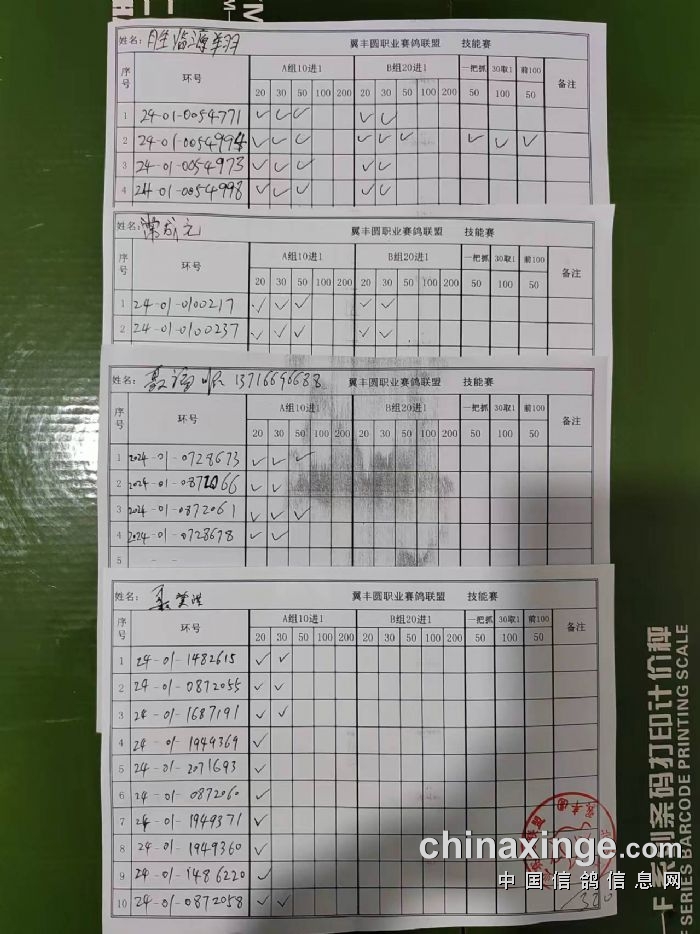 姓名：胜临源羊羽 翼丰圆职业赛鸽联盟 技能赛
序号 环号 A组10进1 B组20进1 一把抓 30取1 前100 备注
20 30 50 100 200 20 30 50 100 200 50 100 50
1 24-01-0054771 ✓ ✓ ✓ ✓ ✓
2 24-01-0054994 ✓ ✓ ✓ ✓ ✓ ✓ ✓ ✓ ✓
3 24-01-0054973 ✓ ✓ ✓ ✓ ✓
4 24-01-0054998 ✓ ✓ ✓ ✓ ✓
姓名： 翼丰圆职业赛鸽联盟 技能赛
序号 环号 A组10进1 B组20进1 一把抓 30取1 前100 备注
20 30 50 100 200 20 30 50 100 200 50 100 50
1 24-01-0100217 ✓ ✓ ✓ ✓ ✓
2 24-01-0100237 ✓ ✓ ✓ ✓ ✓
姓名： 13716696688 翼丰圆职业赛鸽联盟 技能赛
序号 环号 A组10进1 B组20进1 一把抓 30取1 前100 备注
20 30 50 100 200 20 30 50 100 200 50 100 50
1 2024-01-0728673 ✓ ✓ ✓
2 2024-01-0872066 ✓ ✓
3 2024-01-0872061 ✓ ✓ ✓
4 2024-01-0728678 ✓ ✓
5 - -
姓名： 翼丰圆职业赛鸽联盟 技能赛
序号 环号 A组10进1 B组20进1 一把抓 30取1 前100 备注
20 30 50 100 200 20 30 50 100 200 50 100 50
1 24-01-1482615 ✓ ✓
2 24-01-0872055 ✓ ✓
3 24-01-1687191 ✓ ✓
4 24-01-1949369 ✓
5 24-01-2071693 ✓
6 24-01-0872060 ✓
7 24-01-1949371 ✓
8 24-01-1949360 ✓
9 24-01-1486220 ✓
10 24-01-0872058 ✓ ✓
1320
chinaxinge.com
中国信鸽信息网
F系列条码打印计价秤
F SERIES BARCODE PRINTING SCALE